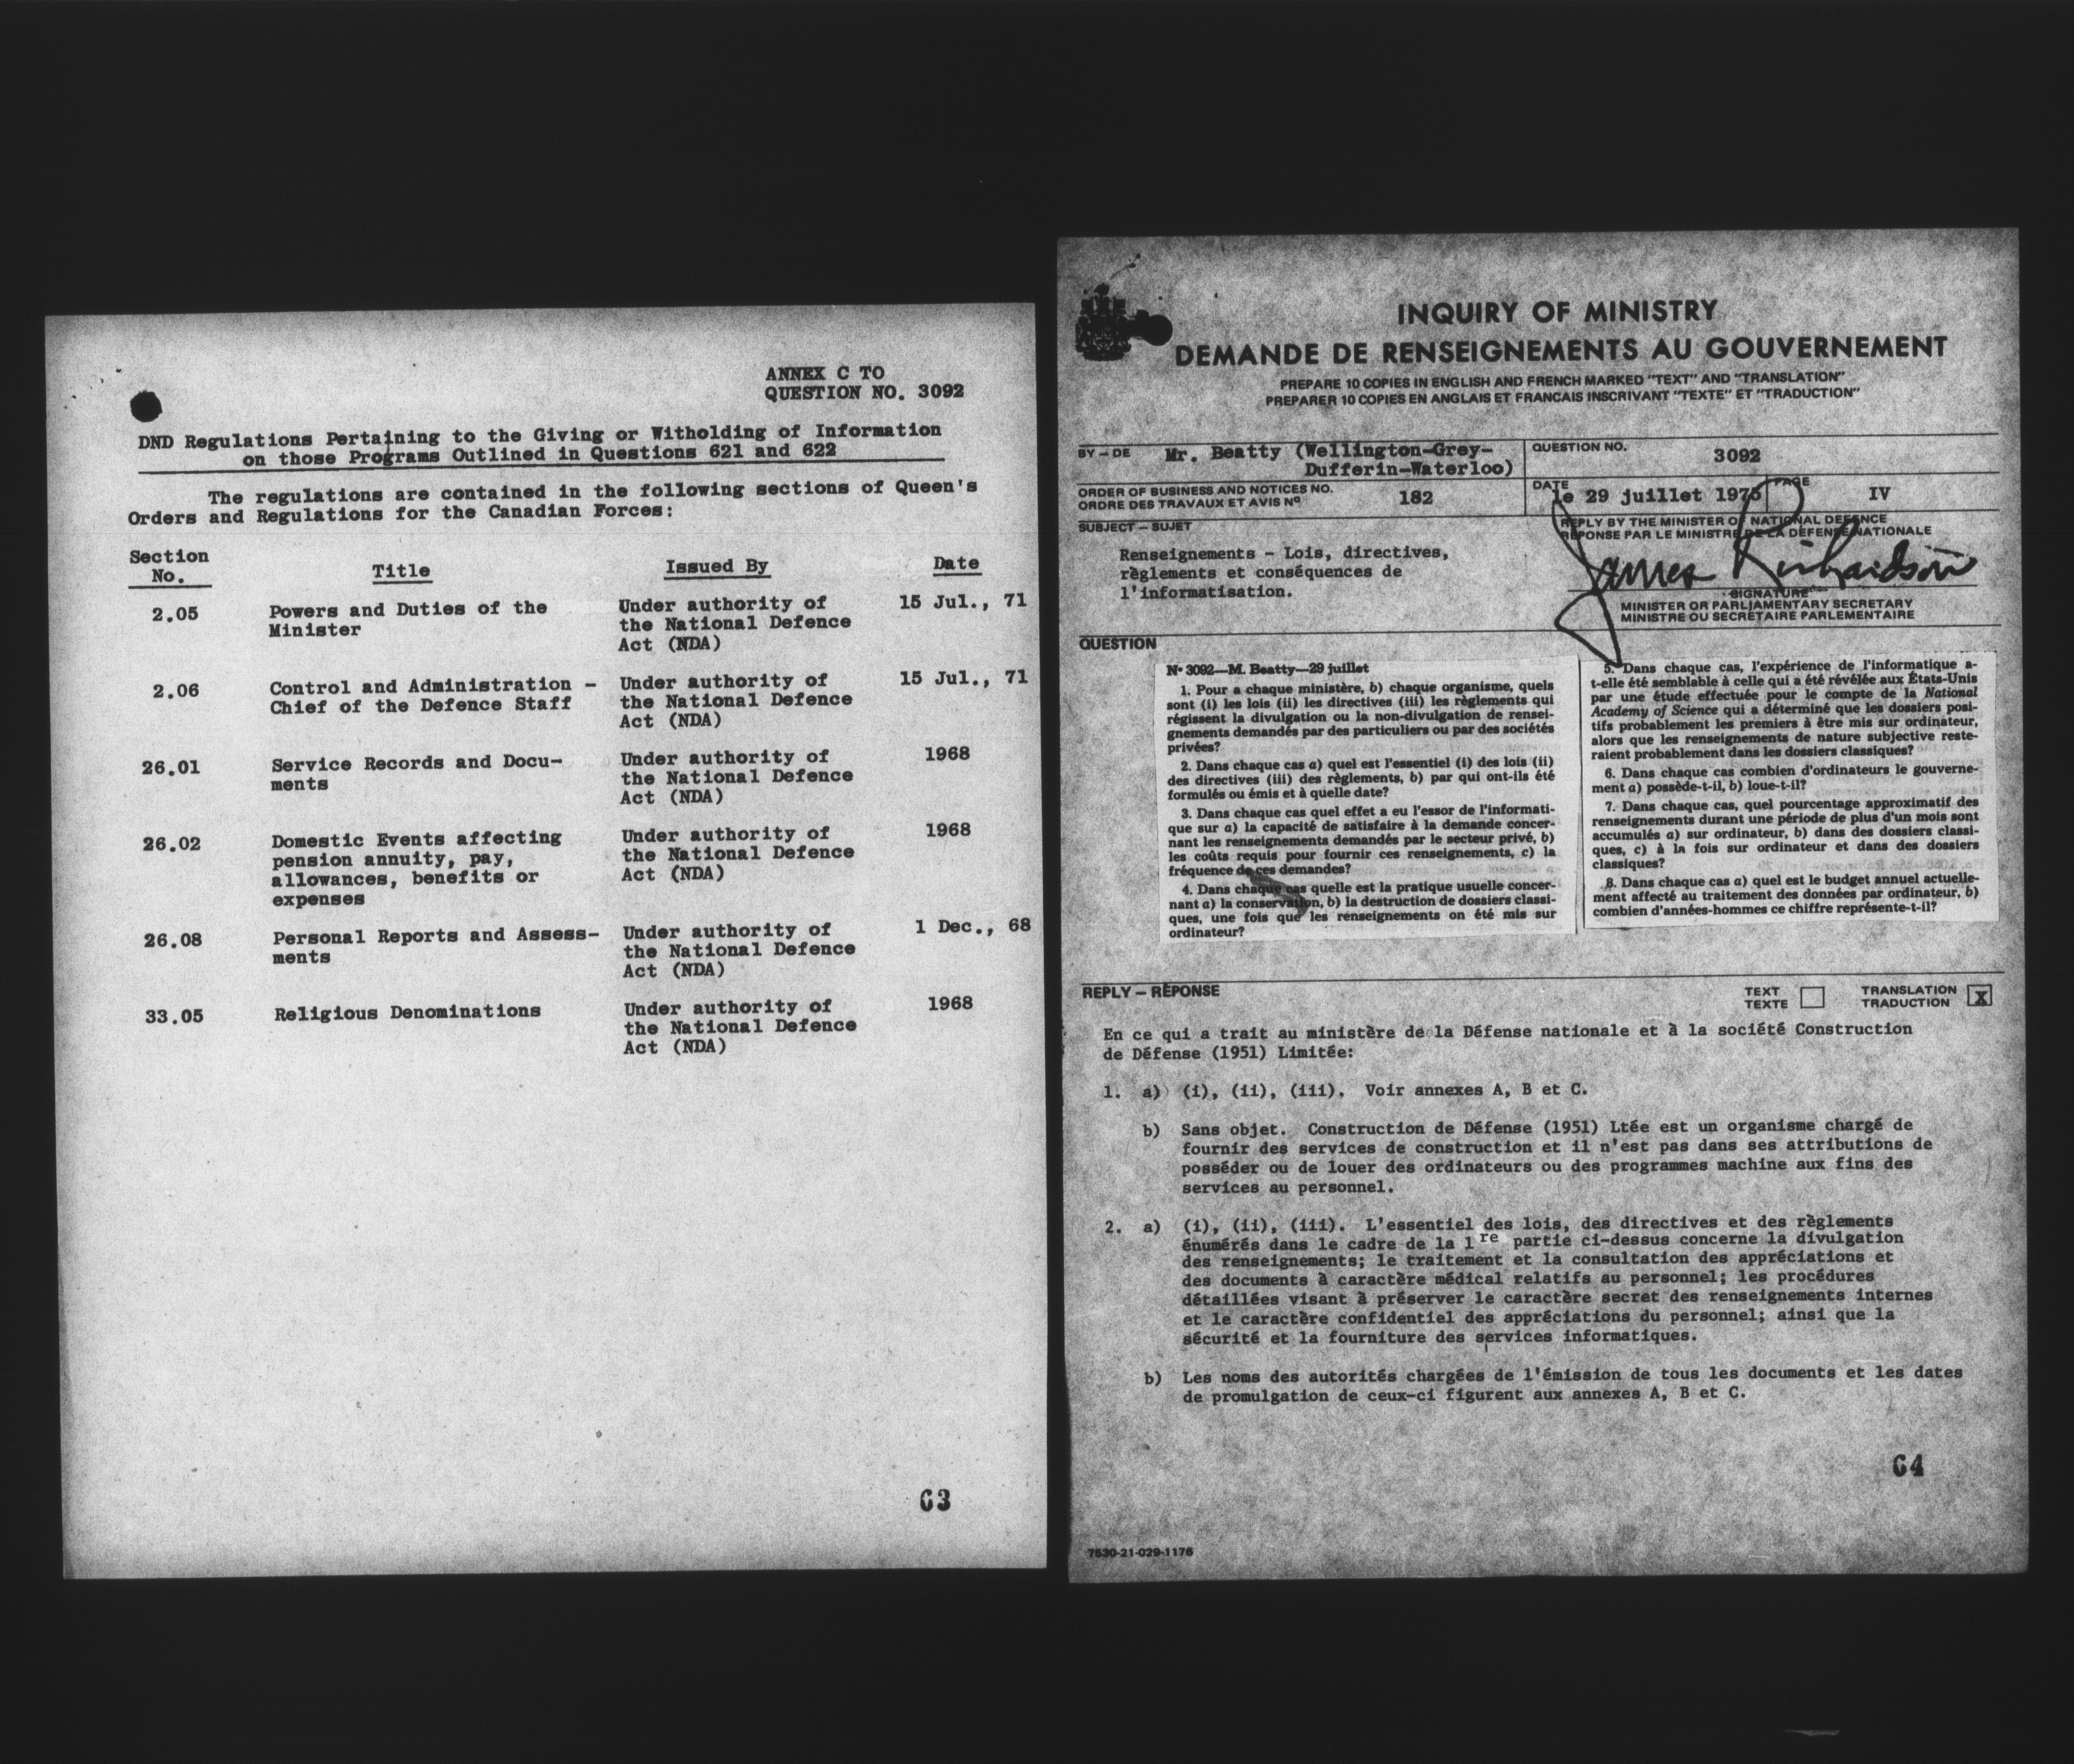 ANNEX C TO
QUESTION NO. 3092
DND Regulations Pertaining to the Giving or Witholding of Information
on those Programs Outlined in Questions 621 and 622
The regulations are contained in the following sections of Queen's
Orders and Regulations for the Canadian Forces:
Section No. Title Issued By Date
2.05 Powers and Duties of the Under authority of 15 Jul., 71
Minister the National Defence
Act (NDA)
2.06 Control and Administration - Under authority of 15 Jul., 71
Chief of the Defence Staff the National Defence
Act (NDA)
26.01 Service Records and Docu- Under authority of 1968
ments the National Defence
Act (NDA)
26.02 Domestic Events affecting Under authority of 1968
pension annuity, pay, the National Defence
allowances, benefits or Act (NDA)
expenses
26.08 Personal Reports and Assess- Under authority of 1 Dec., 68
ments the National Defence
Act (NDA)
33.05 Religious Denominations Under authority of 1968
the National Defence
Act (NDA)
63
INQUIRY OF MINISTRY
DEMANDE DE RENSEIGNEMENTS AU GOUVERNEMENT
PREPARE 10 COPIES IN ENGLISH AND FRENCH MARKED "TEXT" AND "TRANSLATION"
PREPARER 10 COPIES EN ANGLAIS ET FRANCAIS INSCRIVANT "TEXTE" ET "TRADUCTION"
BY – DE Mr. Beatty (Wellington-Grey-
Dufferin-Waterloo)
QUESTION NO. 3092
ORDER OF BUSINESS AND NOTICES NO.
ORDRE DES TRAVAUX ET AVIS Nº 182
DATE le 29 juillet 1975
PAGE IV
SUBJECT – SUJET
Renseignements - Lois, directives,
règlements et conséquences de
l'informatisation.
REPLY BY THE MINISTER OF NATIONAL DEFENCE
RÉPONSE PAR LE MINISTRE DE LA DÉFENSE NATIONALE
James Richardson
SIGNATURE
MINISTER OR PARLIAMENTARY SECRETARY
MINISTRE OU SECRÉTAIRE PARLEMENTAIRE
QUESTION
Nº 3092—M. Beatty—29 juillet
1. Pour a chaque ministère, b) chaque organisme, quels
sont (i) les lois (ii) les directives (iii) les règlements qui
régissent la divulgation ou la non-divulgation de rensei-
gnements demandés par des particuliers ou par des sociétés
privées?
2. Dans chaque cas a) quel est l'essentiel (i) des lois (ii)
des directives (iii) des règlements, b) par qui ont-ils été
formulés ou émis et à quelle date?
3. Dans chaque cas quel effet a eu l'essor de l'informati-
que sur a) la capacité de satisfaire à la demande concer-
nant les renseignements demandés par le secteur privé, b)
les coûts requis pour fournir ces renseignements, c) la
fréquence de ces demandes?
4. Dans chaque cas quelle est la pratique usuelle concer-
nant a) la conservation, b) la destruction de dossiers classi-
ques, une fois que les renseignements on été mis sur
ordinateur?
5. Dans chaque cas, l'expérience de l'informatique a-
t-elle été semblable à celle qui a été révélée aux États-Unis
par une étude effectuée pour le compte de la National
Academy of Science qui a déterminé que les dossiers posi-
tifs probablement les premiers à être mis sur ordinateur,
alors que les renseignements de nature subjective reste-
raient probablement dans les dossiers classiques?
6. Dans chaque cas combien d'ordinateurs le gouverne-
ment a) possède-t-il, b) loue-t-il?
7. Dans chaque cas, quel pourcentage approximatif des
renseignements durant une période de plus d'un mois sont
accumulés a) sur ordinateur, b) dans des dossiers classi-
ques, c) à la fois sur ordinateur et dans des dossiers
classiques?
8. Dans chaque cas a) quel est le budget annuel actuelle-
ment affecté au traitement des données par ordinateur, b)
combien d'années-hommes ce chiffre représente-t-il?
REPLY – RÉPONSE
TEXT
TEXTE
TRANSLATION
TRADUCTION X
En ce qui a trait au ministère de la Défense nationale et à la société Construction
de Défense (1951) Limitée:
1. a) (i), (ii), (iii). Voir annexes A, B et C.
b) Sans objet. Construction de Défense (1951) Ltée est un organisme chargé de
fournir des services de construction et il n'est pas dans ses attributions de
posséder ou de louer des ordinateurs ou des programmes machine aux fins des
services au personnel.
2. a) (i), (ii), (iii). L'essentiel des lois, des directives et des règlements
énumérés dans le cadre de la 1re partie ci-dessus concerne la divulgation
des renseignements; le traitement et la consultation des appréciations et
des documents à caractère médical relatifs au personnel; les procédures
détaillées visant à préserver le caractère secret des renseignements internes
et le caractère confidentiel des appréciations du personnel; ainsi que la
sécurité et la fourniture des services informatiques.
b) Les noms des autorités chargées de l'émission de tous les documents et les dates
de promulgation de ceux-ci figurent aux annexes A, B et C.
64
7530-21-029-1176